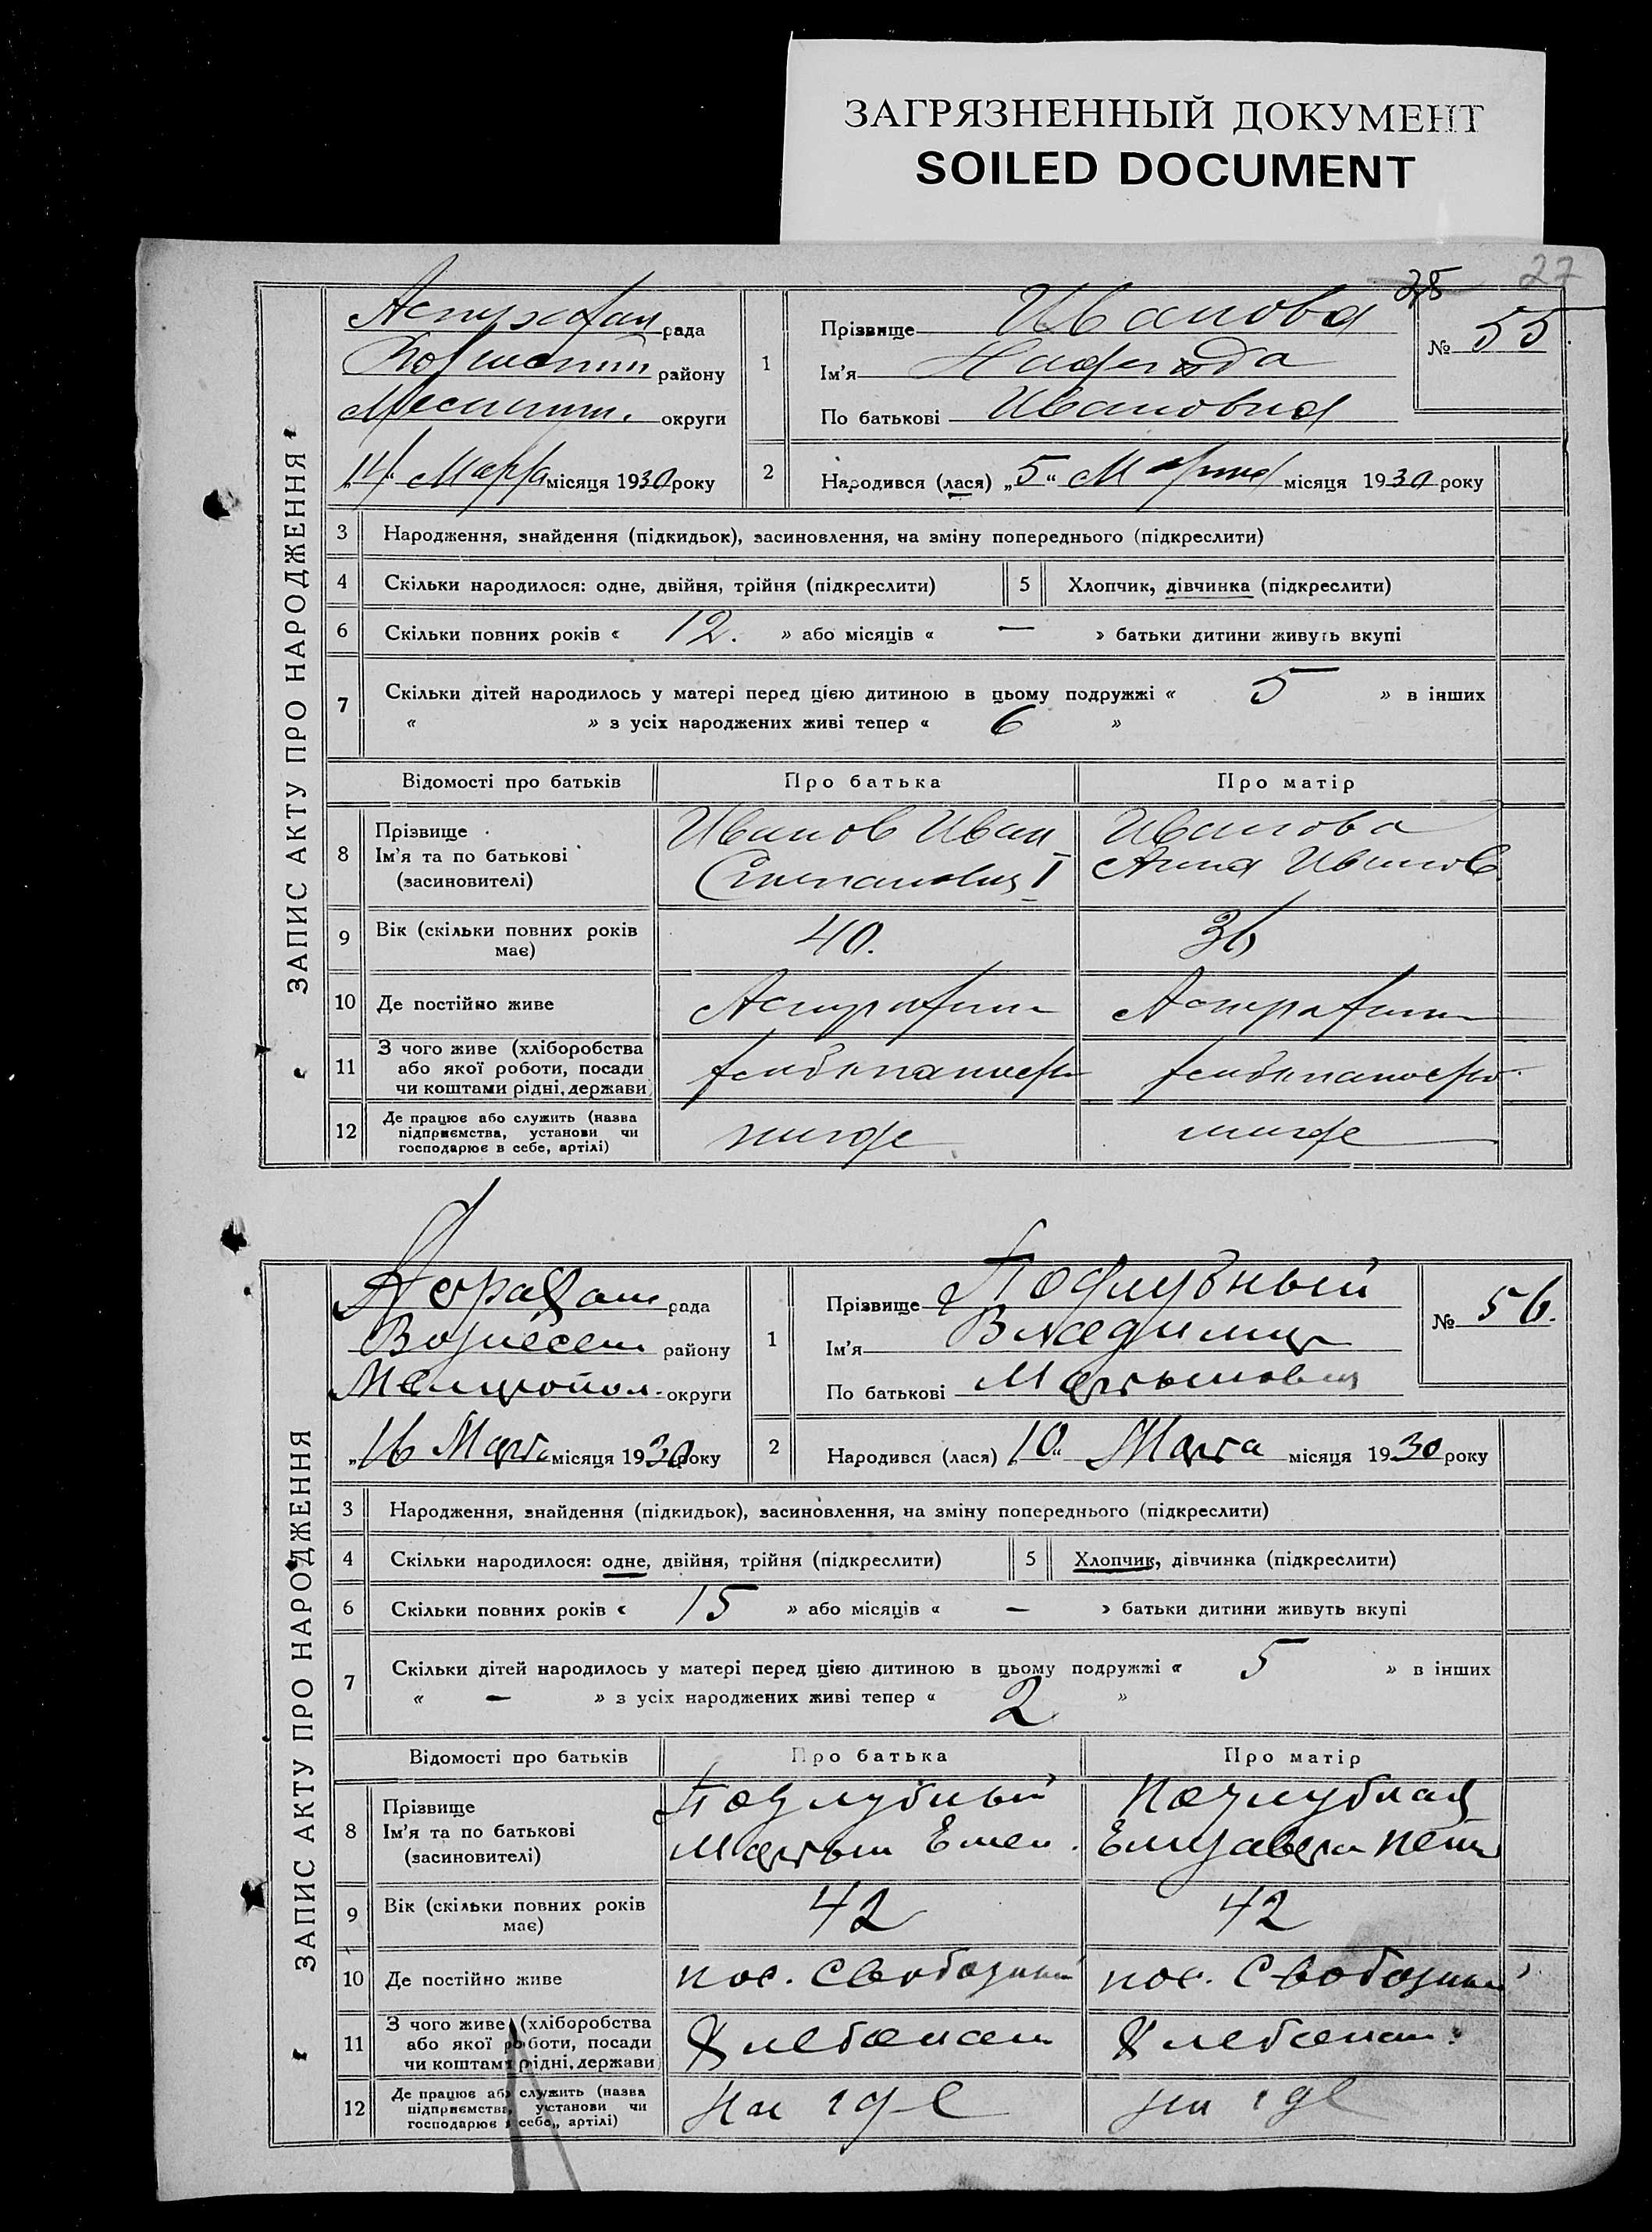 ЗАГРЯЗНЕННЫЙ ДОКУМЕНТ
SOILED DOCUMENT
28 27
ЗАПИС АКТУ ПРО НАРОДЖЕННЯ
рада
району
округи
„14“ Марта місяця 1930 року
1
Прізвище Иванова
Ім'я Надежда
По батькові Ивановна
№ 55
2
Народився (лася) „5“ Марта місяця 1930 року
3 Народження, знайдення (підкидьок), засиновлення, на зміну попереднього (підкреслити)
4 Скільки народилося: одне, двійня, трійня (підкреслити) 5 Хлопчик, дівчинка (підкреслити)
6 Скільки повних років « 12. » або місяців « — » батьки дитини живуть вкупі
7 Скільки дітей народилось у матері перед цією дитиною в цьому подружжі « 5 » в інших
« » з усіх народжених живі тепер « 6 »
Відомості про батьків Про батька Про матір
8 Прізвище
Ім'я та по батькові
(засиновителі)
Иванов Иван
Степанович I
Иванова
Анна Иванов
9 Вік (скільки повних років має) 40. 36
10 Де постійно живе
11 З чого живе (хліборобства або якої роботи, посади чи коштами рідні, держави)
12 Де працює або служить (назва підприємства, установи чи господарює в себе, артілі) нигде нигде
ЗАПИС АКТУ ПРО НАРОДЖЕННЯ
рада
Вознесен району
Мелитопол. округи
„16 Марта місяця 1930 року
1
Прізвище Подлубный
Ім'я Владимир
По батькові Мартынович
№ 56.
2
Народився (лася) „10“ Марта місяця 1930 року
3 Народження, знайдення (підкидьок), засиновлення, на зміну попереднього (підкреслити)
4 Скільки народилося: одне, двійня, трійня (підкреслити) 5 Хлопчик, дівчинка (підкреслити)
6 Скільки повних років « 15 » або місяців « — » батьки дитини живуть вкупі
7 Скільки дітей народилось у матері перед цією дитиною в цьому подружжі « 5 » в інших
« — » з усіх народжених живі тепер « 2 »
Відомості про батьків Про батька Про матір
8 Прізвище
Ім'я та по батькові
(засиновителі)
Подлубный
Мартын Емен.
Подлубная
Елизавета
9 Вік (скільки повних років має) 42 42
10 Де постійно живе пос. Свободный пос. Свободный
11 З чого живе (хліборобства або якої роботи, посади чи коштами рідні, держави) Хлебопаш Хлебопаш.
12 Де працює або служить (назва підприємства, установи чи господарює в себе, артілі)